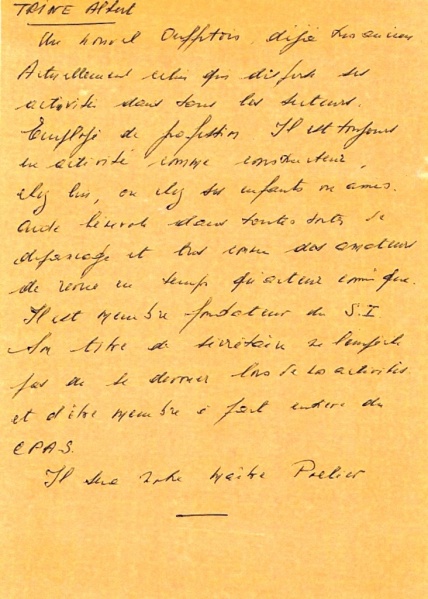 TRINE Albert
Un nouvel Ouffetois, déjà très ancien
Actuellement celui qui disperse ses
activités dans tous les secteurs.
Employé de profession Il est toujours
en activité comme constructeur,
chez lui, ou chez ses enfants ou amis.
Aide bénévole dans toutes sortes de
dépannage et très connu des amateurs
de revue en temps qu'acteur comique.
Il est membre fondateur du S.I
Son titre de secrétaire ne l'empêche
pas de se donner lors de ses activités
et d'être membre à part entière du
C.P.A.S.
Il sera notre Maître